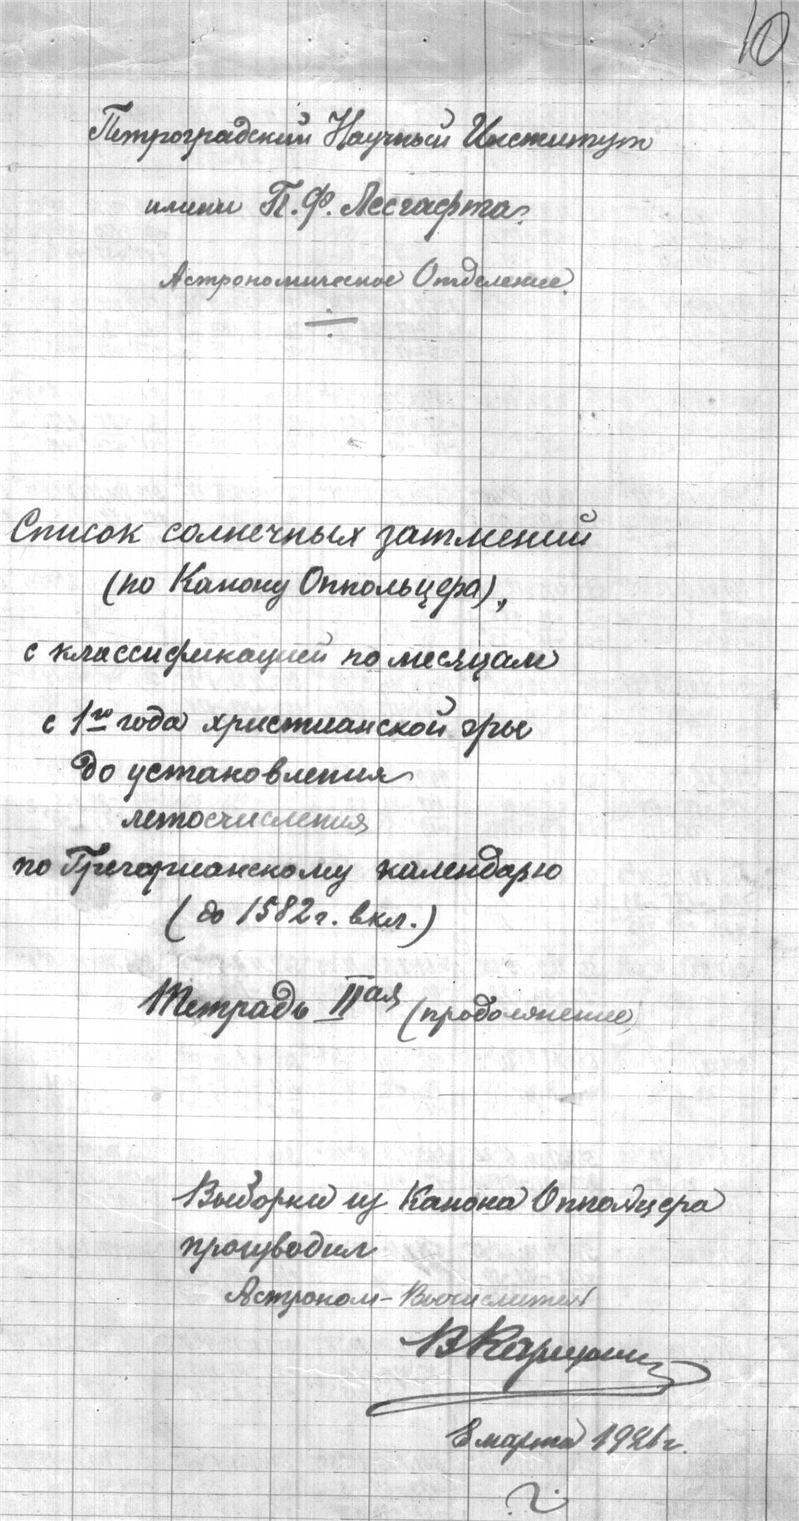 10
Петроградский Научный Институт
имени П. Ф. Лесгафта.
Астрономическое Отделение.
Список солнечных затмений
(по Канону Оппольцера),
с классификацией по месяцам
с 1го года христианской эры
до установления
летосчисления
по Григорианскому календарю
(до 1582 г. вкл.)
Тетрадь IIая (продолжение)
Выборки из Канона Оппольцера
производил
Астроном-Вычислитель
8 марта 1921 г.